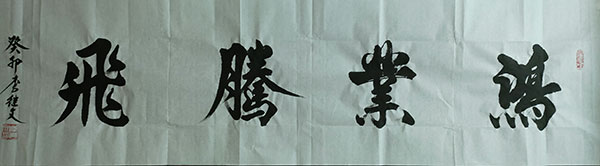 鴻業騰飛
癸卯李文